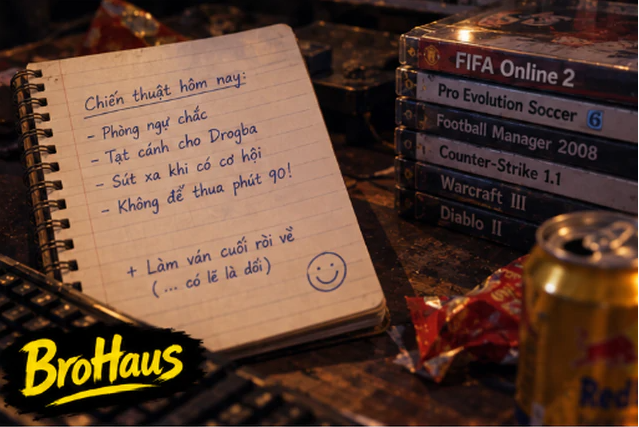 Chiến thuật hôm nay:
- Phòng ngự chắc
- Tạt cánh cho Drogba
- Sút xa khi có cơ hội
- Không để thua phút 90!
+ Làm ván cuối rồi về
(... có lẽ là dối)
FIFA Online 2
Pro Evolution Soccer 6
Football Manager 2008
Counter-Strike 1.1
Warcraft III
Diablo II
Red
BroHaus